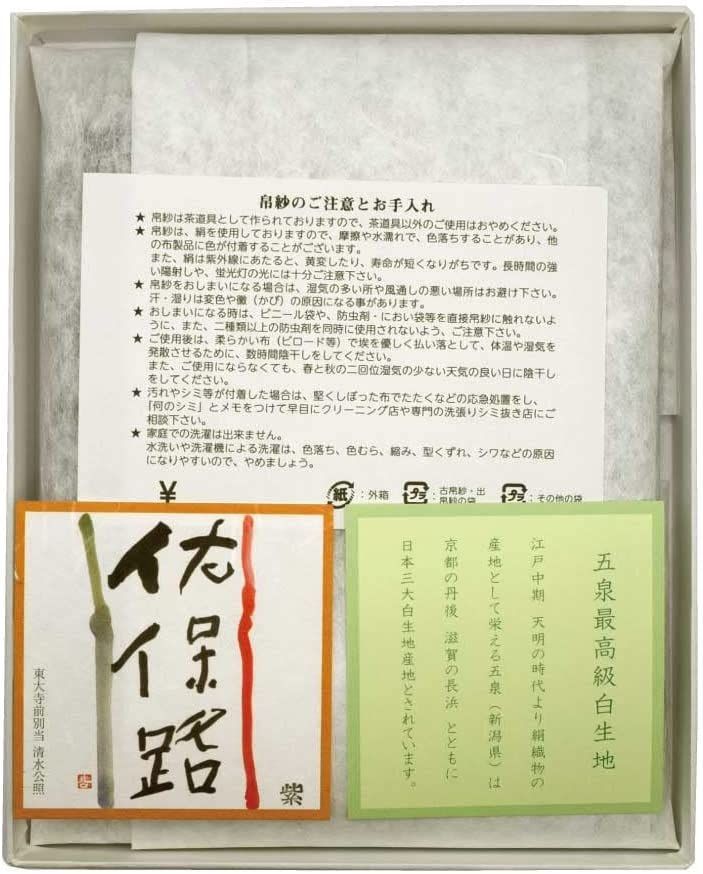 帛紗のご注意とお手入れ
★ 帛紗は茶道具として作られておりますので、茶道具以外のご使用はおやめください。
★ 帛紗は、絹を使用しておりますので、摩擦や水濡れで、色落ちすることがあり、他
の布製品に色が付着することがございます。
また、絹は紫外線にあたると、黄変したり、寿命が短くなりがちです。長時間の強
い陽射しや、蛍光灯の光には十分ご注意下さい。
★ 帛紗をおしまいになる場合は、湿気の多い所や風通しの悪い場所はお避け下さい。
汗・湿りは変色や黴(かび)の原因になる事があります。
★ おしまいになる時は、ビニール袋や、防虫剤・におい袋等を直接帛紗に触れないよ
うに、また、二種類以上の防虫剤を同時に使用されないよう、ご注意下さい。
★ ご使用後は、柔らかい布(ビロード等)で埃を優しく払い落として、体温や湿気を
発散させるために、数時間陰干しをしてください。
また、ご使用にならなくても、春と秋の二回位湿気の少ない天気の良い日に陰干し
をしてください。
★ 汚れやシミ等が付着した場合は、堅くしぼった布でたたくなどの応急処置をし、
「何のシミ」とメモをつけて早目にクリーニング店や専門の洗張りシミ抜き店にご
相談下さい。
★ 家庭での洗濯は出来ません。
水洗いや洗濯機による洗濯は、色落ち、色むら、縮み、型くずれ、シワなどの原因
になりやすいので、やめましょう。
¥
紙 :外箱
プラ :古帛紗・出
帛紗の袋
プラ :その他の袋
佐保路
東大寺前別当 清水公照
紫
五泉最高級白生地
江戸中期 天明の時代より絹織物の
産地として栄える五泉(新潟県)は
京都の丹後 滋賀の長浜 とともに
日本三大白生地産地とされています。